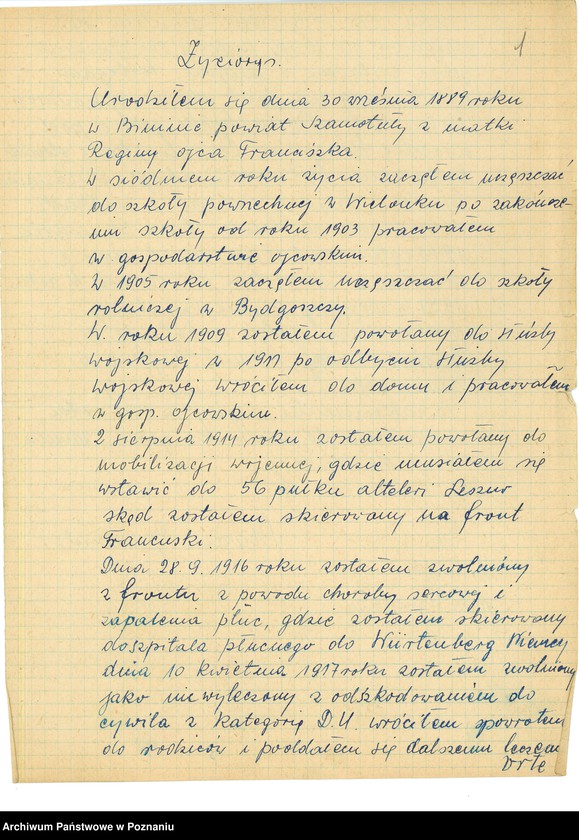 1
Życiorys.
Urodziłem się dnia 30 września 1889 roku
w Biminie powiat Szamotuły z matki
Reginy ojca Franciszka.
W siódmem roku życia zaczęłem uczęszczać
do szkoły powszechnej w Wielonku po zakończe-
niu szkoły od roku 1903 pracowałem
w gospodarstwie ojcowskim.
W 1905 roku zaczęłem uczęszczać do szkoły
rolniczej w Bydgoszczy.
W. roku 1909 zostałem powołany do służby
wojskowej w 1911 po odbyciu służby
wojskowej wróciłem do domu i pracowałem
w gosp. ojcowskim.
2 sierpnia 1914 roku zostałem powołany do
mobilizacji wojennej, gdzie musiałem się
wstawić do 56 pułku altoleri Leszno
skąd zostałem skierowany na front
Francuski.
Dnia 28.9.1916 roku zostałem zwolniony
z frontu z powodu choroby sercowej i
zapalenia płuc, gdzie zostałem skierowany
do szpitala płucnego do Würtenberg Niemcy
dnia 10 kwietnia 1917 roku zostałem zwolniony
jako nie wyleczony z odszkodowaniem do
cywila z kategorię D.U. wróciłem spowrotem
do rodziców i poddałem się dalszemu leczeniu
Vrte
Archiwum Państwowe w Poznaniu